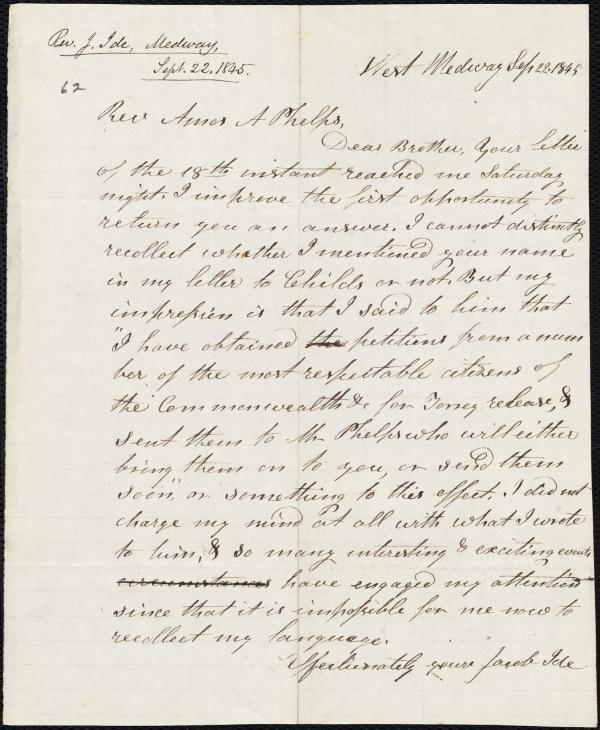 Rev. J. Ide, Medway,
Sept. 22, 1845.
62
West Medway Sep 22. 1845
Rev Amos A Phelps,
Dear Brother, Your letter
of the 18th instant reached me Saturday
night. I improve the first opportunity to
return you an answer. I cannot distinctly
recollect whether I mentioned your name
in my letter to Childs or not. But my
impression is that I said to him that
"I have obtained the petitions from a num
ber of the most respectable citizens of
the Commonwealth &c for Torrey release, &
sent them to Mr Phelps who will either
bring them on to you, or send them
soon," or something to this effect. I did not
charge my mind at all with what I wrote
to him, & so many interesting & exciting events
circumstances have engaged my attention
since that it is impossible for me now to
recollect my language.
Affectionately yours Jacob Ide